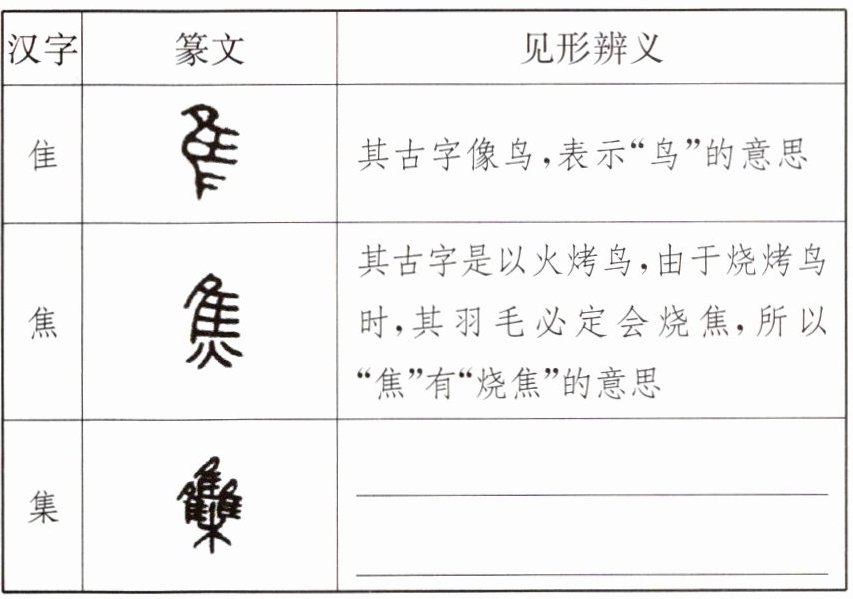 汉字 篆文 见形辨义
隹 其古字像鸟,表示“鸟”的意思
焦 其古字是以火烤鸟,由于烧烤鸟
时,其羽毛必定会烧焦,所以
“焦”有“烧焦”的意思
集